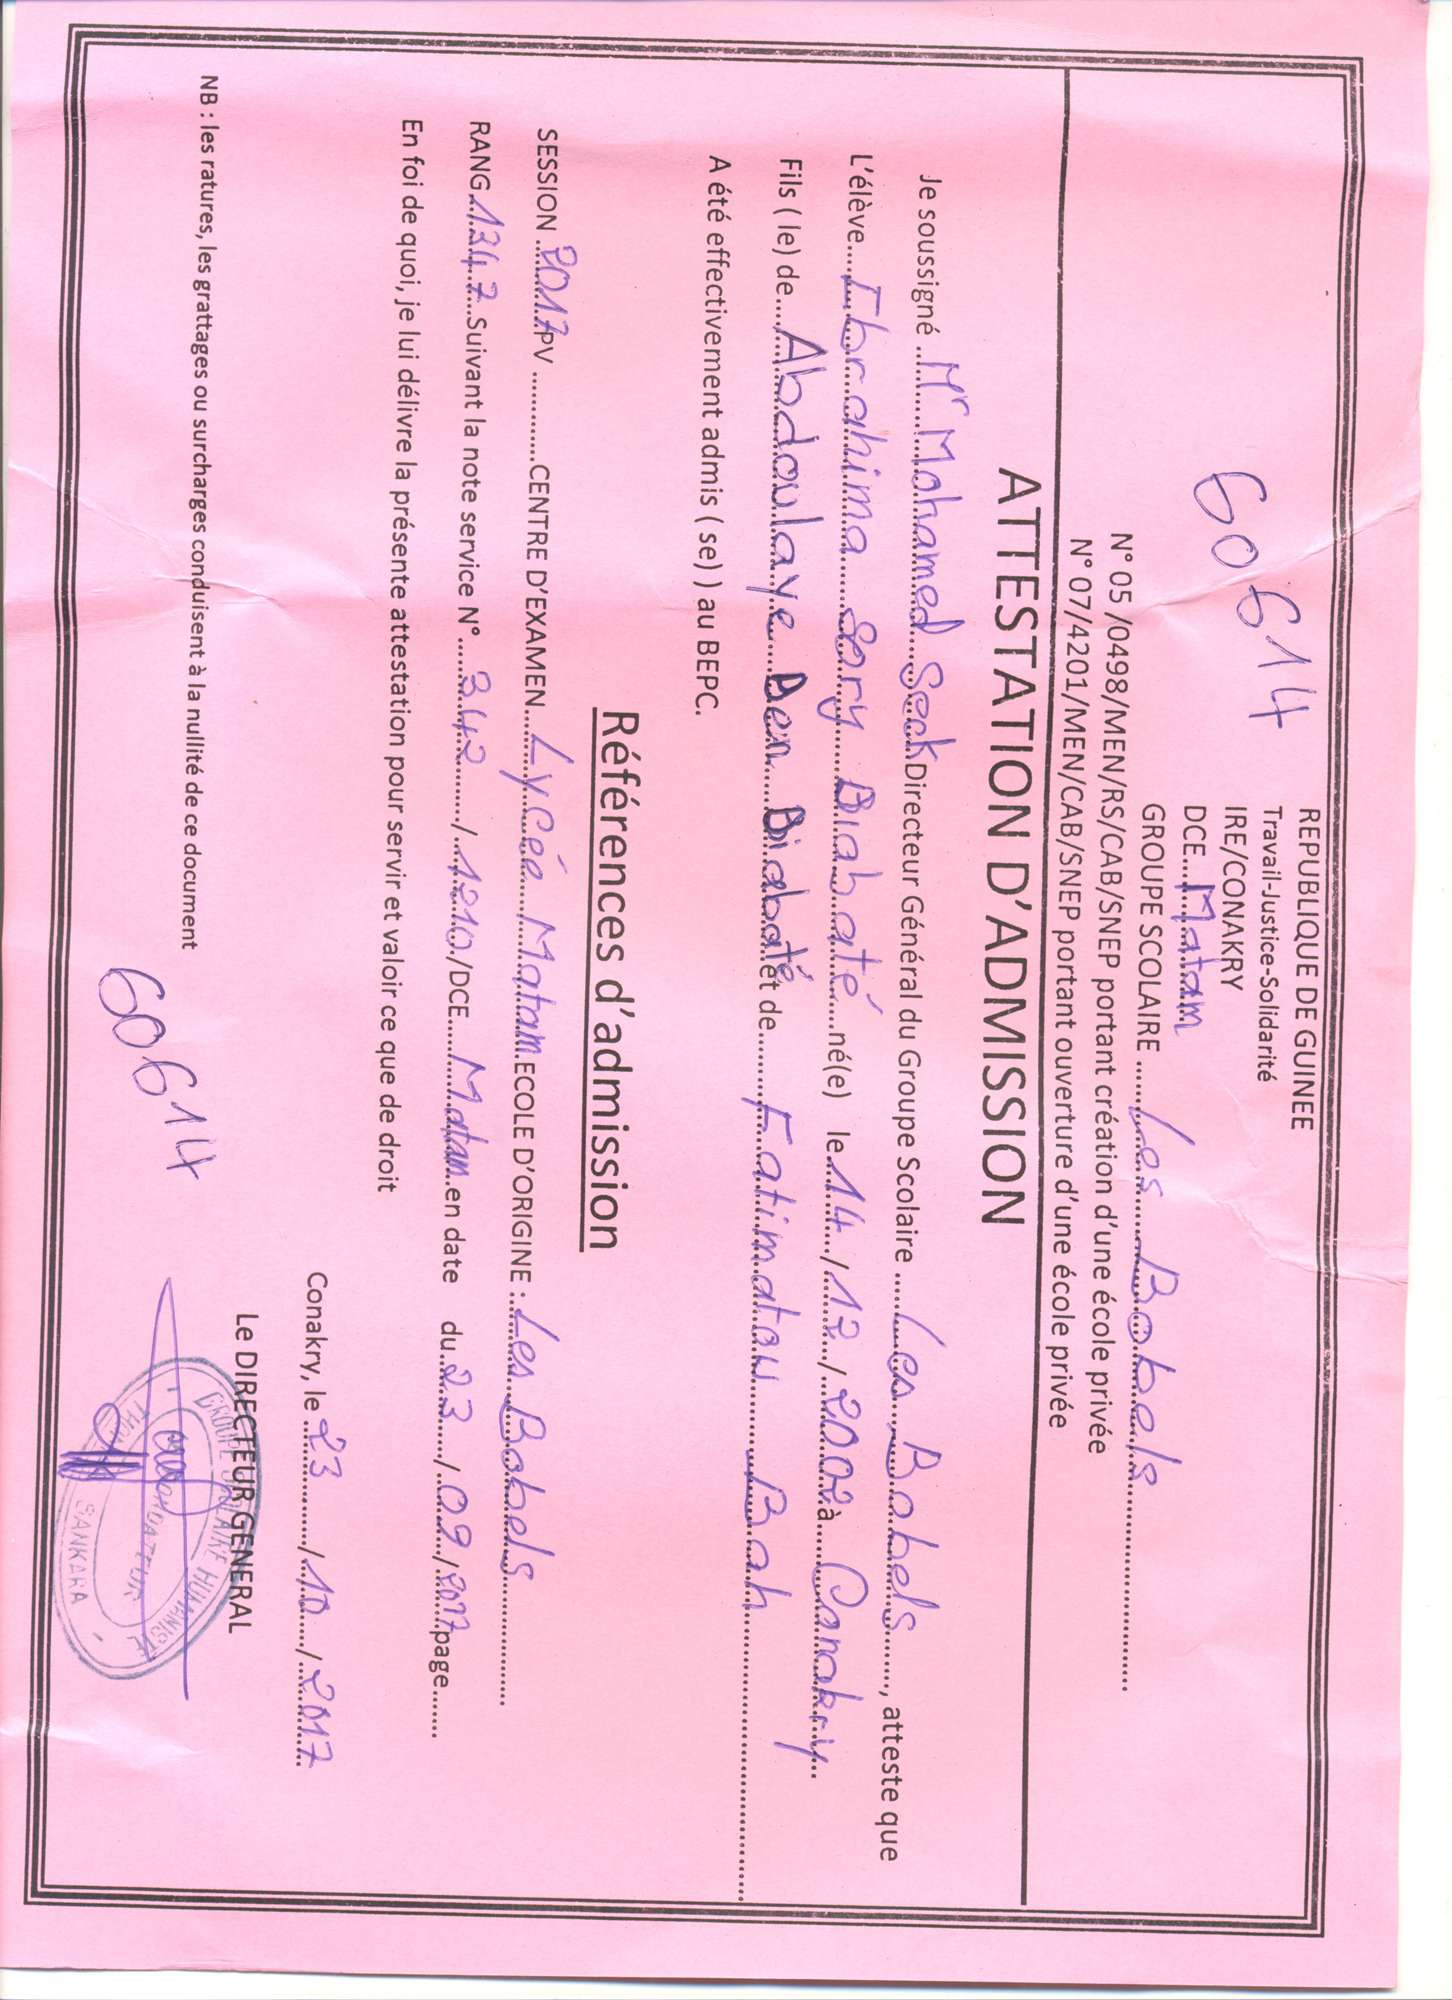 REPUBLIQUE DE GUINEE
Travail-Justice-Solidarité
IRE/CONAKRY
60614
DCE....Matam
GROUPE SCOLAIRE ......Les Bobels......
N° 05 /0498/MEN/RS/CAB/SNEP portant création d'une école privée
N° 07/4201/MEN/CAB/SNEP portant ouverture d'une école privée
ATTESTATION D'ADMISSION
Je soussigné ...Mr Mohamed Seck Directeur Général du Groupe Scolaire ......Les Bobels......, atteste que
L'élève....Ibrahima Sory Diabaté......né(e) le 14 / 12 / 2002 à....Conakry...
Fils ( le) de....Abdoulaye Den Diabaté et de........Fatimatou Bah........
A été effectivement admis ( se) ) au BEPC.
Références d'admission
SESSION ....2017 PV ............CENTRE D'EXAMEN....Lycée Matam ECOLE D'ORIGINE : ....Les Bobels........
RANG 1347...Suivant la note service N°.....342....../..1210./DCE.....Matam..en date du..23..../..09../..2017 page......
En foi de quoi, je lui délivre la présente attestation pour servir et valoir ce que de droit
Conakry, le 23......../..10..../..2017
Le DIRECTEUR GENERAL
GROUPE SCOLAIRE HUMANISTE
FONDATEUR
SANKARA
NB : les ratures, les grattages ou surcharges conduisent à la nullité de ce document
60614